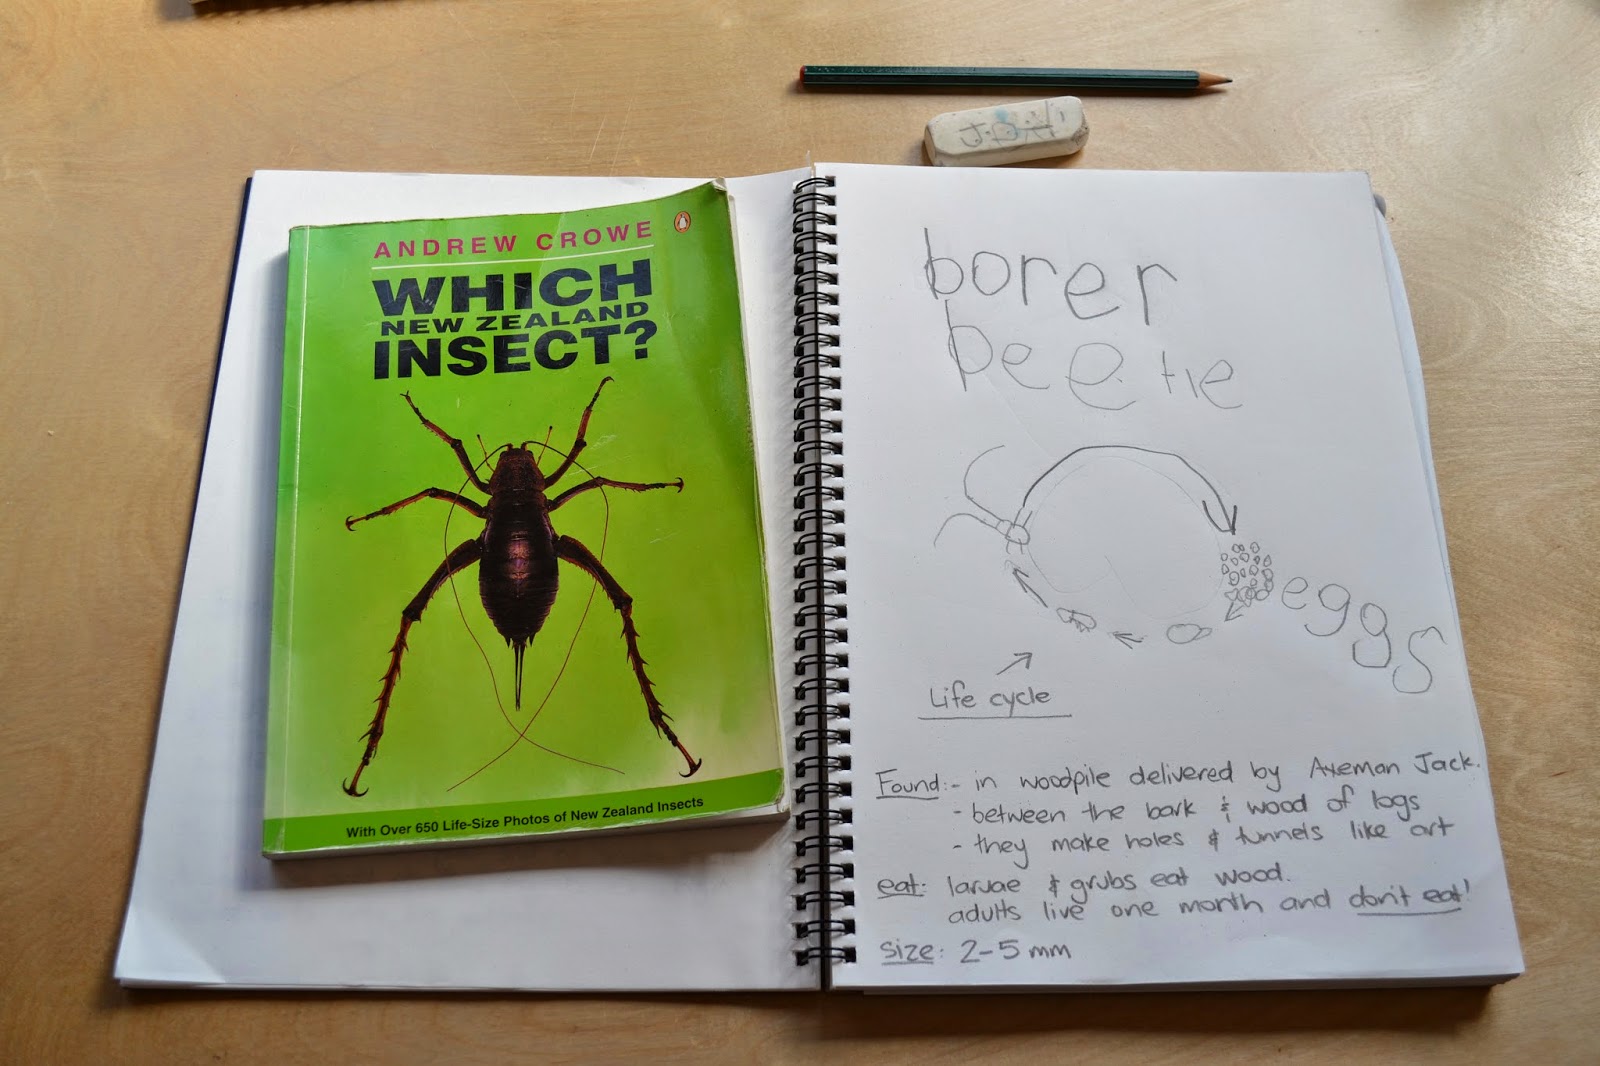 ANDREW CROWE
WHICH
NEW ZEALAND
INSECT?
With Over 650 Life-Size Photos of New Zealand Insects
borer
beetle
eggs
Life cycle
Found:- in woodpile delivered by Axeman Jack.
- between the bark & wood of logs
- they make holes & tunnels like art
eat: larvae & grubs eat wood.
adults live one month and don't eat!
size: 2-5 mm